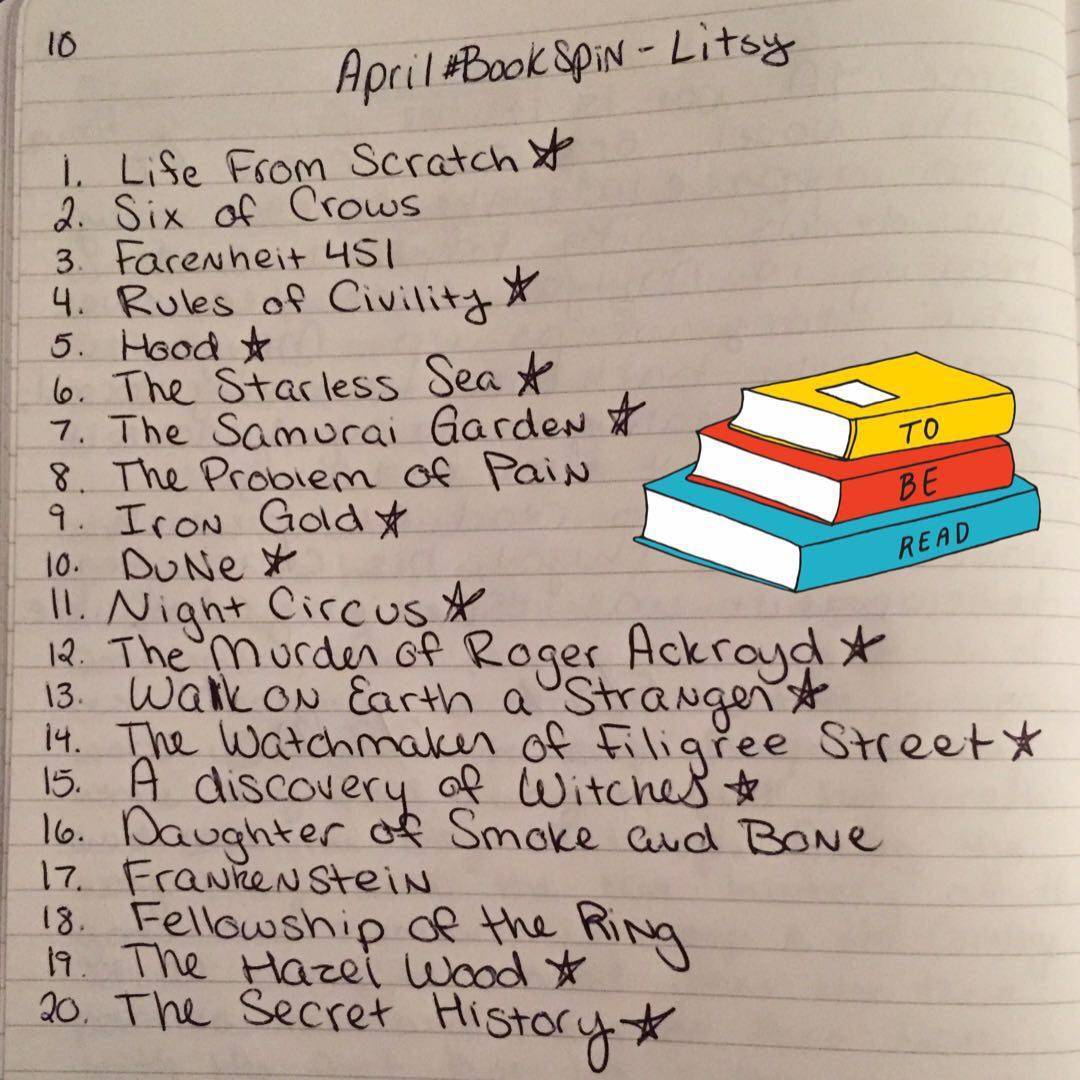 10
April #BookSpin - Litsy
1. Life From Scratch ☆
2. Six of Crows
3. Farenheit 451
4. Rules of Civility ☆
5. Hood ☆
6. The Starless Sea ☆
7. The Samurai Garden ☆
8. The Problem of Pain
9. Iron Gold ☆
10. Dune ☆
11. Night Circus ☆
12. The Murder of Roger Ackroyd ☆
13. Walk on Earth a Stranger ☆
14. The Watchmaker of Filigree Street ☆
15. A discovery of Witches ☆
16. Daughter of Smoke and Bone
17. Frankenstein
18. Fellowship of the Ring
19. The Hazel Wood ☆
20. The Secret History ☆
TO
BE
READ